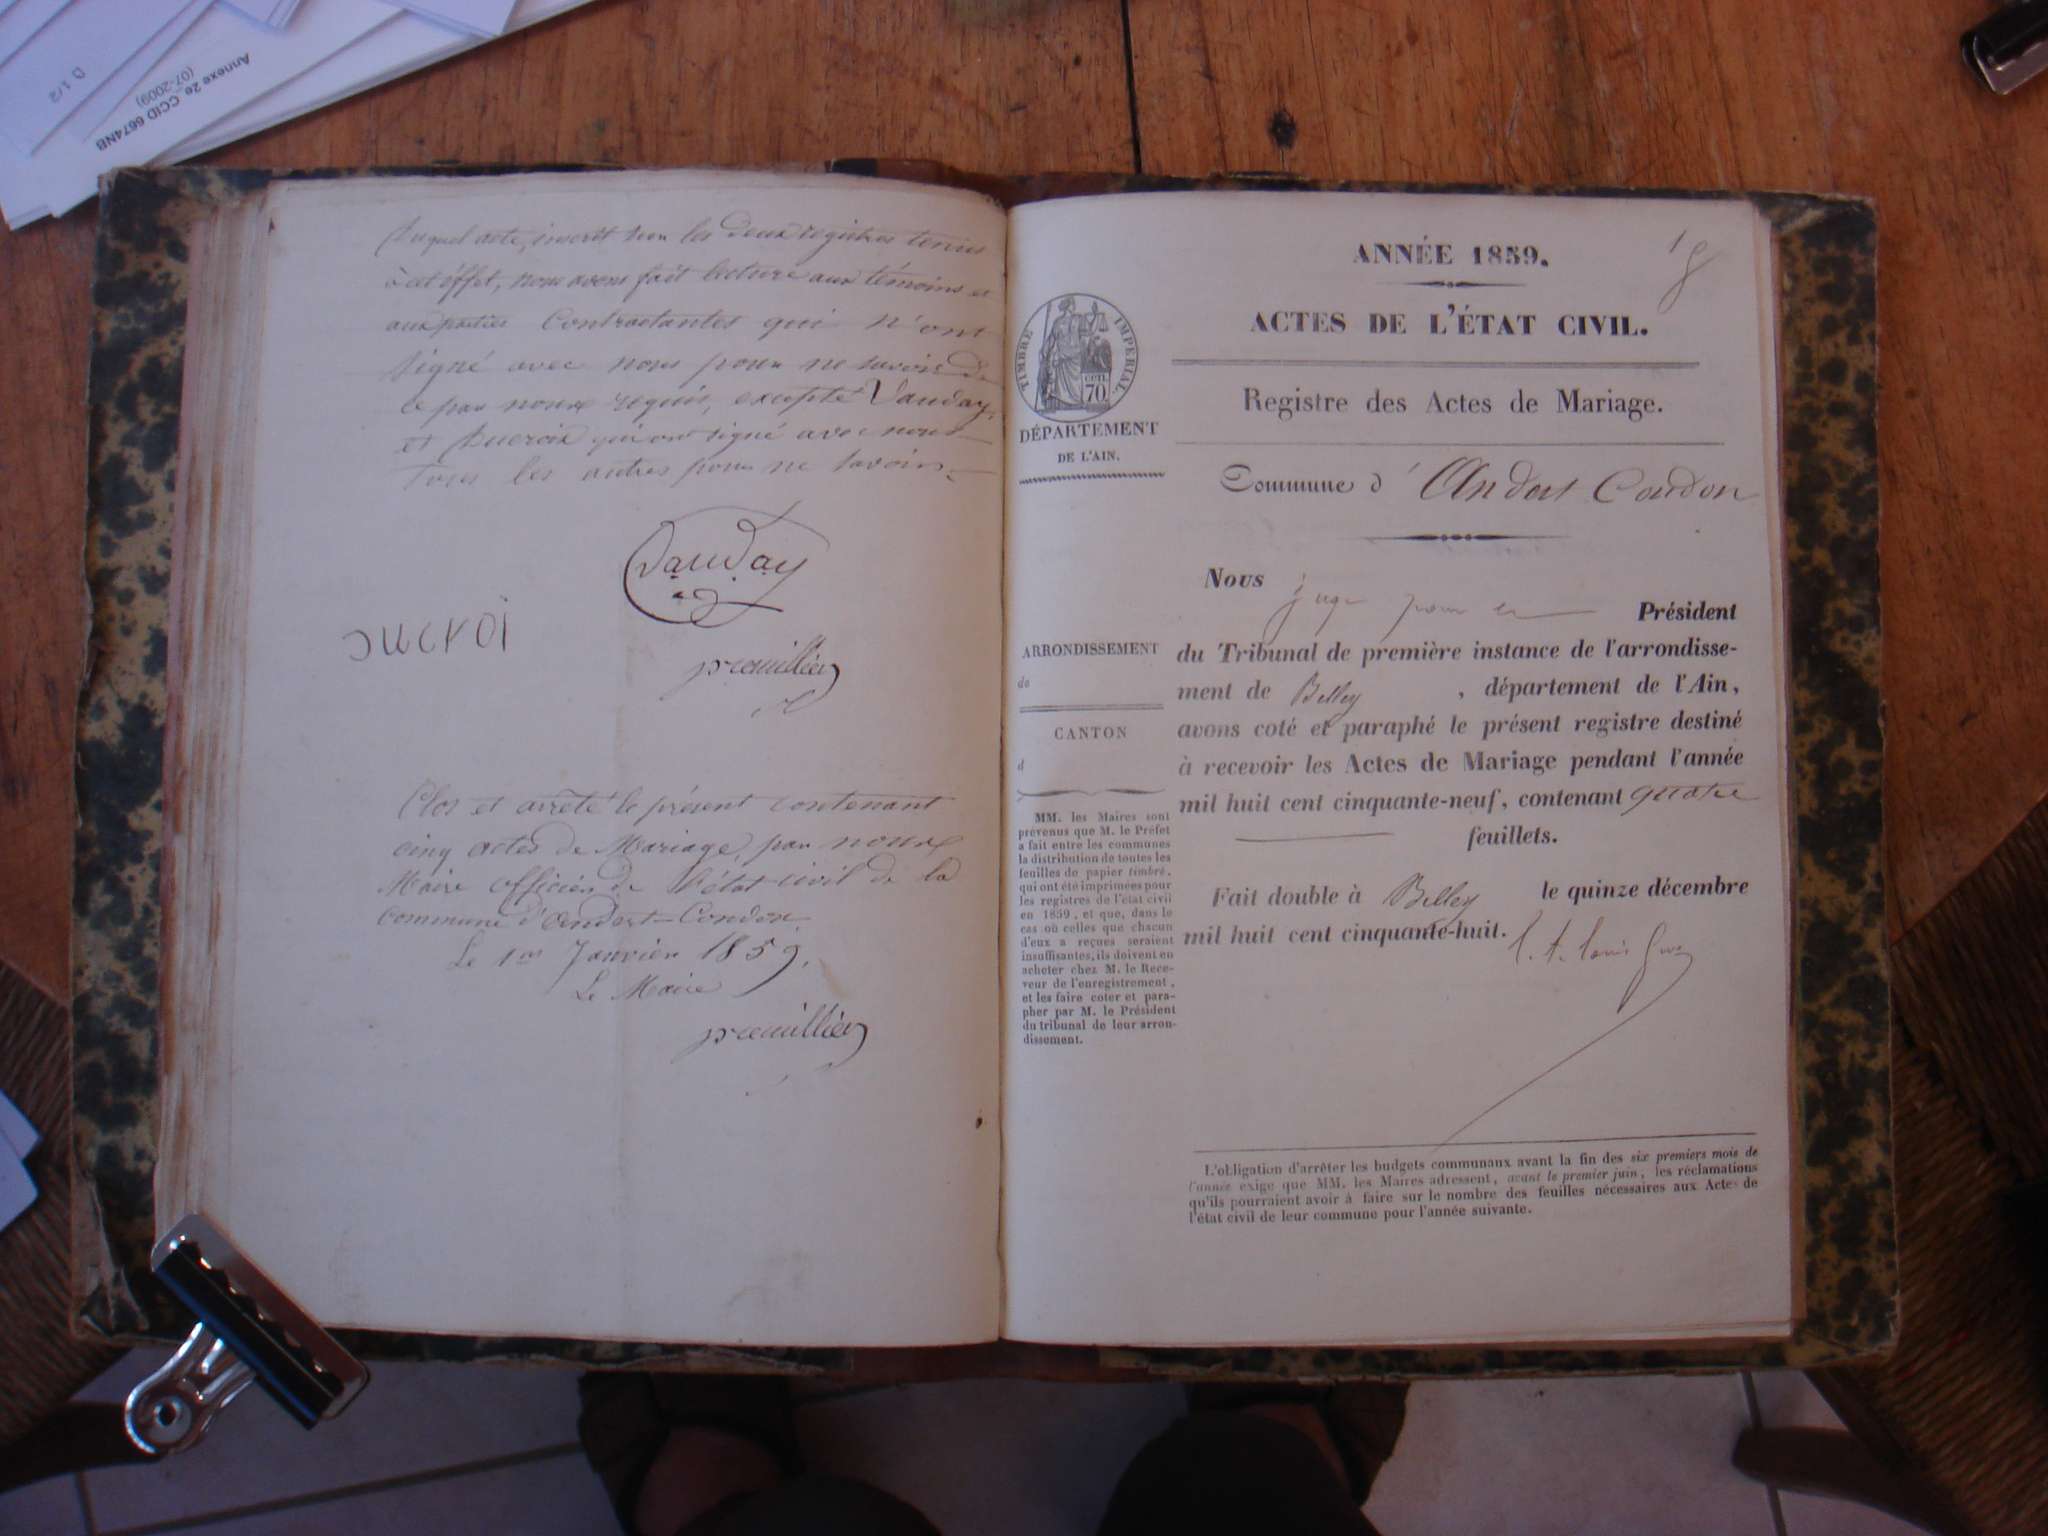 D 1/2
Annexe 2e CCID 6674NB
(07-2009)
Duquel acte, inscrit sur les deux registres tenus
à cet effet, nous avons fait lecture aux témoins et
aux parties Contractantes qui n'ont
signé avec nous pour ne savoir de
ce par nous requis, excepté Vauday,
et Ducroix qui ont signé avec nous
tous les autres pour ne savoir.
Vauday
ducroi
preuillier
Clos et arrêté le présent contenant
cinq actes de Mariage, par nous
Maire officier de l'état civil de la
commune d'Andert-Condon.
Le 1er Janvier 1859.
Le Maire
ANNÉE 1859.
ACTES DE L'ÉTAT CIVIL.
Registre des Actes de Mariage.
TIMBRE IMPERIAL.
CCIL
70
DÉPARTEMENT
DE L'AIN.
Commune d' Andert Condon
Nous juge pour le Président
du Tribunal de première instance de l'arrondisse-
ment de Belley , département de l'Ain,
avons coté et paraphé le présent registre destiné
à recevoir les Actes de Mariage pendant l'année
mil huit cent cinquante-neuf, contenant quatre
feuillets.
Fait double à Belley le quinze décembre
mil huit cent cinquante-huit.
ARRONDISSEMENT
de
CANTON
d
MM. les Maires sont
prévenus que M. le Préfet
a fait entre les communes
la distribution de toutes les
feuilles de papier timbré,
qui ont été imprimées pour
les registres de l'état civil
en 1859, et que, dans le
cas où celles que chacun
d'eux a reçues seraient
insuffisantes, ils doivent en
acheter chez M. le Rece-
veur de l'enregistrement,
et les faire coter et para-
pher par M. le Président
du tribunal de leur arron-
dissement.
L'obligation d'arrêter les budgets communaux avant la fin des six premiers mois de
l'année exige que MM. les Maires adressent, avant le premier juin, les réclamations
qu'ils pourraient avoir à faire sur le nombre des feuilles nécessaires aux Actes de
l'état civil de leur commune pour l'année suivante.